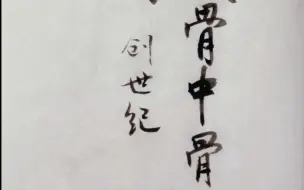 骨中骨
创世纪